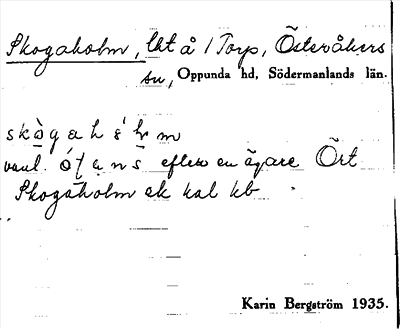 Skogaholm, lht å / Torp, Österåkers
sn, Oppunda hd, Södermanlands län.
vanl. efter en ägare Ört
Skogaholm ek kal kb
Karin Bergström 1935.